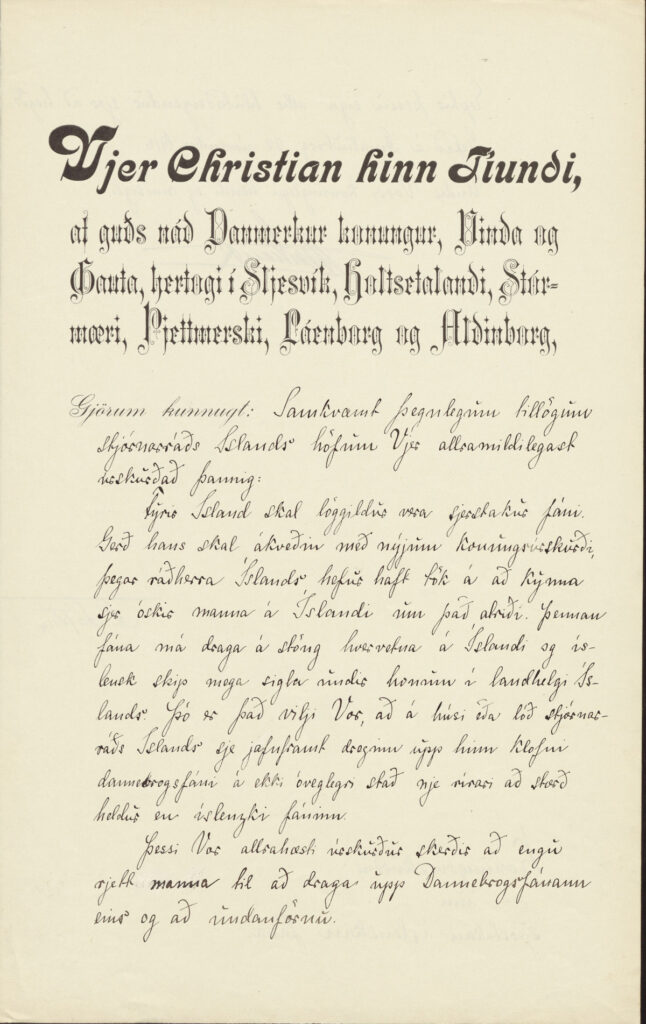 Vjer Christian hinn Tiundi,
af guðs náð Danmerkur konungur, Vinda og
Gauta, hertogi í Sljesvík, Holtsetalandi, Stór-
mæri, Þjettmerski, Láenborg og Aldinborg,
Gjörum kunnugt: Samkvæmt þegnlegum tillögum
stjórnarráðs Íslands höfum Vjer allramildilegast
úrskurðað þannig:
Fyrir Ísland skal löggildur vera sjerstakur fáni.
Gerð hans skal ákveðin með nýjum konungsúrskurði,
þegar ráðherra Íslands hefur haft tök á að kynna
sjer óskir manna á Íslandi um það atriði. Þennan
fána má draga á stöng hvervetna á Íslandi og ís-
lensk skip mega sigla undir honum í landhelgi Ís-
lands. Þó er það vilji Vor, að á húsi eða lóð stjórnar-
ráðs Íslands sje jafnframt dreginn upp hinn klofni
dannebrogsfáni á ekki óveglegri stað nje rírari að stærð
heldur en íslenzki fáninn.
Þessi Vor allrahæsti úrskurður skerðir að engu
rjett manna til að draga upp Dannebrogsfánann
eins og að undanförnu.